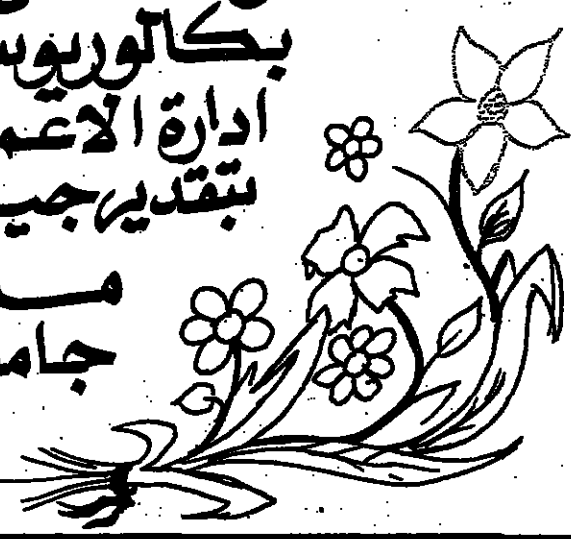 بكالوريوس
ادارة الاعم
بتقدير جيـ
مـ
جامـ